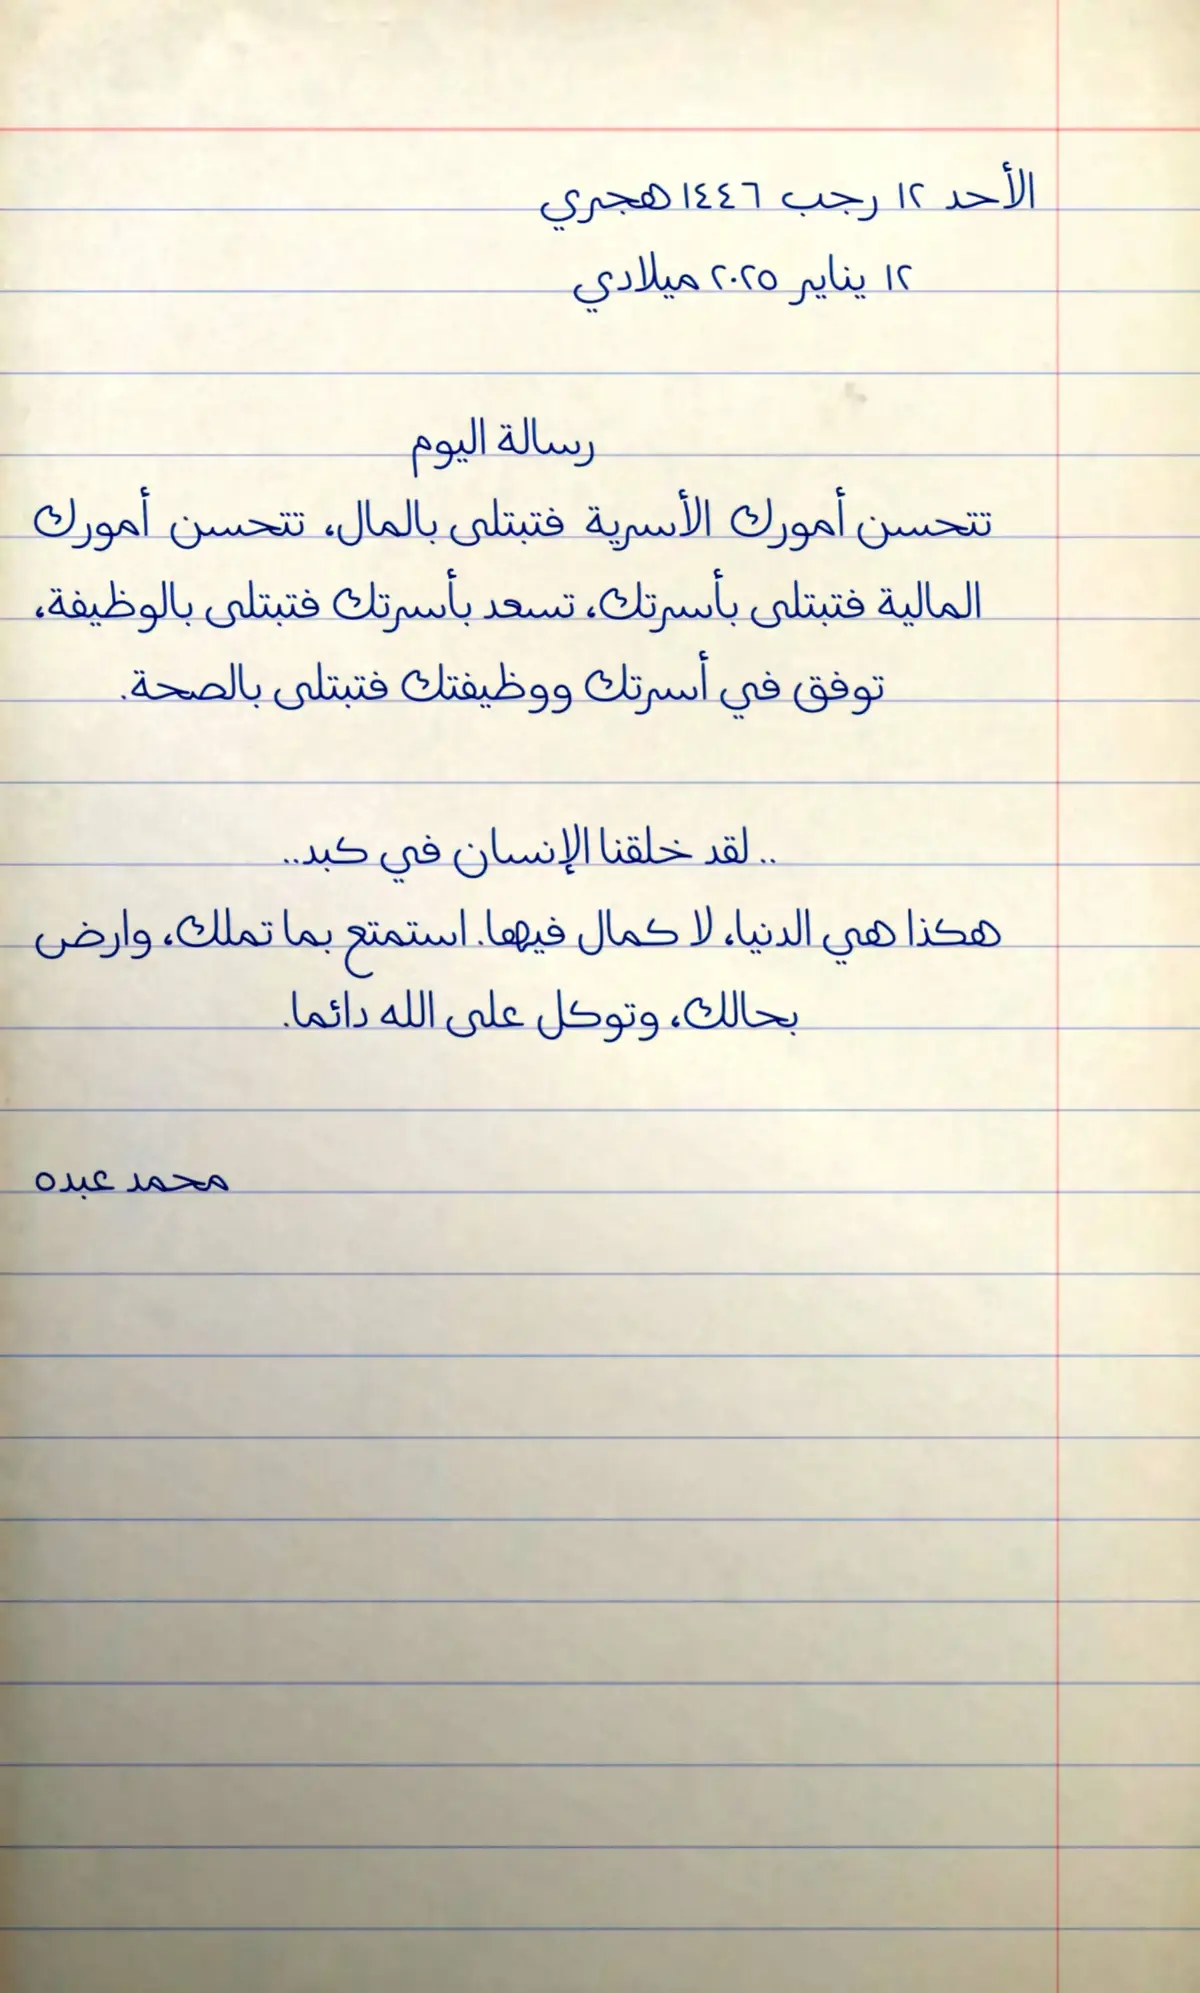 الأحد ١٢ رجب ١٤٤٦ هجري
١٢ يناير ٢٠٢٥ ميلادي
رسالة اليوم
تتحسن أمورك الأسرية فتبتلى بالمال، تتحسن أمورك
المالية فتبتلى بأسرتك، تسعد بأسرتك فتبتلى بالوظيفة،
توفق في أسرتك ووظيفتك فتبتلى بالصحة.
.. لقد خلقنا الإنسان في كبد..
هكذا هي الدنيا، لا كمال فيها. استمتع بما تملك، وارض
بحالك، وتوكل على الله دائما.
محمد عبده